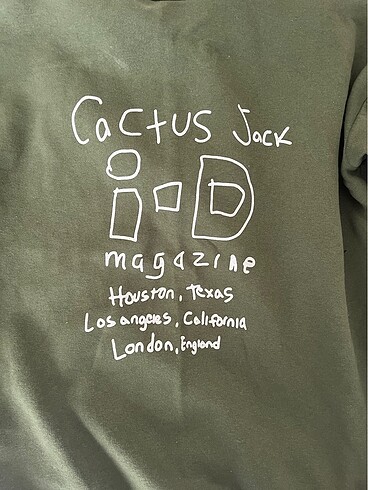 Cactus Jack
i-D
magazine
Houston, Texas
Los angeles, California
London, England